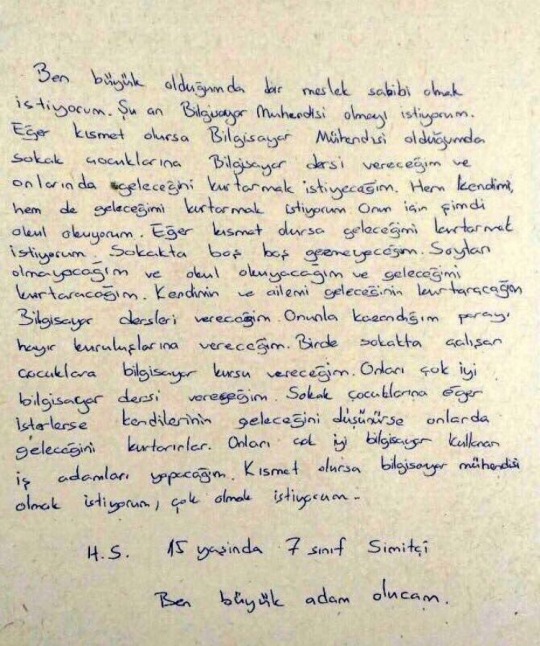 Ben büyük olduğumda bir meslek sahibi olmak
istiyorum. Şu an Bilguayar Muhendisi olmayı istiyorum.
Eğer kısmet olursa Bilgisayar Mühendisi olduğumda
sokak çocuklarına Bilgisayar dersi vereceğim ve
onlarında geleceğini kurtarmak istiyeceğim. Hem kendimi,
hem de geleceğimi kurtarmak istiyorum Onun için şimdi
okul okuyorum. Eğer kısmet olursa geleceğimi kurtarmak
istiyorum. Sokakta boş boş gezmeyeceğim. Soytarı
olmayacağım ve okul okuyacağım ve geleceğimi
kurtaracağım. Kendimin ve ailemi geleceğinin kurtaracağım
Bilgisayar dersleri vereceğim. Onunla kazandığım parayı
hayır kuruluşlarına vereceğim. Birde sokakta çalışan
çocuklara bilgisayar kursu vereceğim. Onları çok iyi
bilgisayar dersi vereceğim. Sokak çocuklarına eğer
isterlerse kendilerinin geleceğini düşünürse onlarda
geleceğini kurtarırlar. Onları çok iyi bilgisayar kullanan
iş adamları yapacağım. Kısmet olursa bilgisayar mühendisi
olmak istiyorum, çok olmak istiyorum..
H.S. 15 yaşinda 7 sınıf Simitçi
Ben büyük adam olucam.